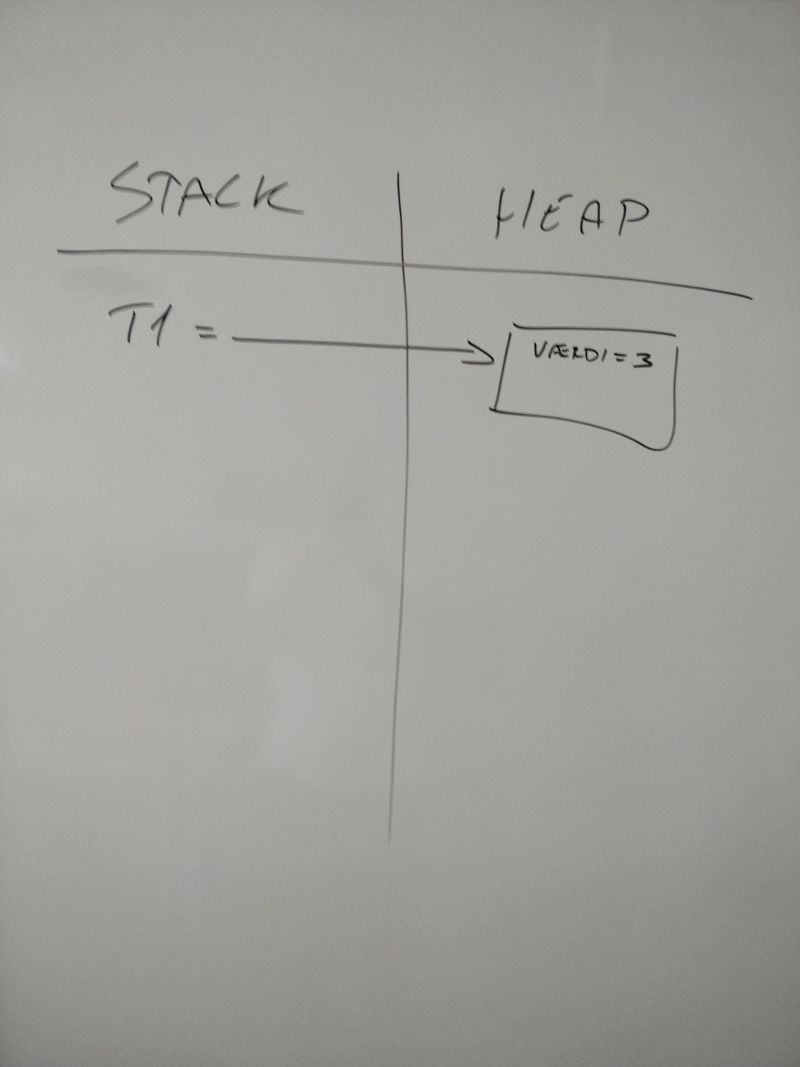 STACK
HEAP
T1 =
VÆRDI = 3